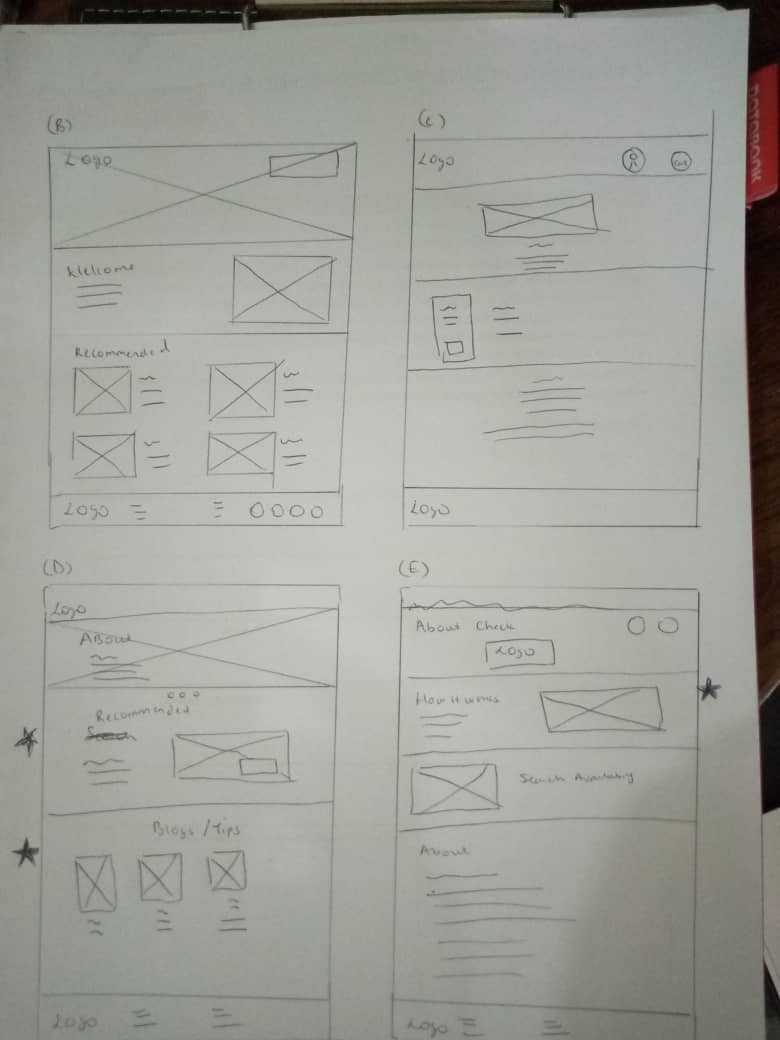 (B)
Logo
Welcome
Recommended
Logo
(C)
Logo
Logo
(D)
Logo
About
Recommended
Blogs / Tips
Logo
(E)
About Check
Logo
How it works
Search
About
Logo